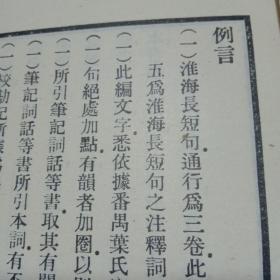 例言
(一)淮海長短句通行爲三卷此
五爲淮海長短句之注釋詞
(一)此編文字悉依據番禺葉氏
(一)句絕處加點有韻者加圈以則
(一)所引筆記詞話等書取其有關
(一)筆記詞話等書所引本詞有不
(一)校勘記所據